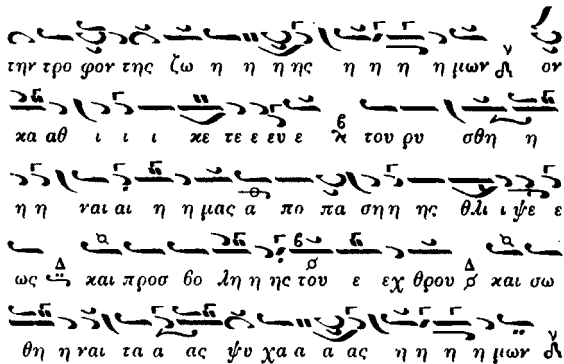 την τρο φον της ζω η η η ης η η η η μων ον
κα αθ ι ι ι κε τε ε ευ ε του ρυ σθη η
η η ναι αι η η μας α πο πα ση η ης θλι ι ψε ε
ως και προσ βο λη η ης του ε εχ θρου και σω
θη η ναι τα α ας ψυ χα α α ας η η η η μων